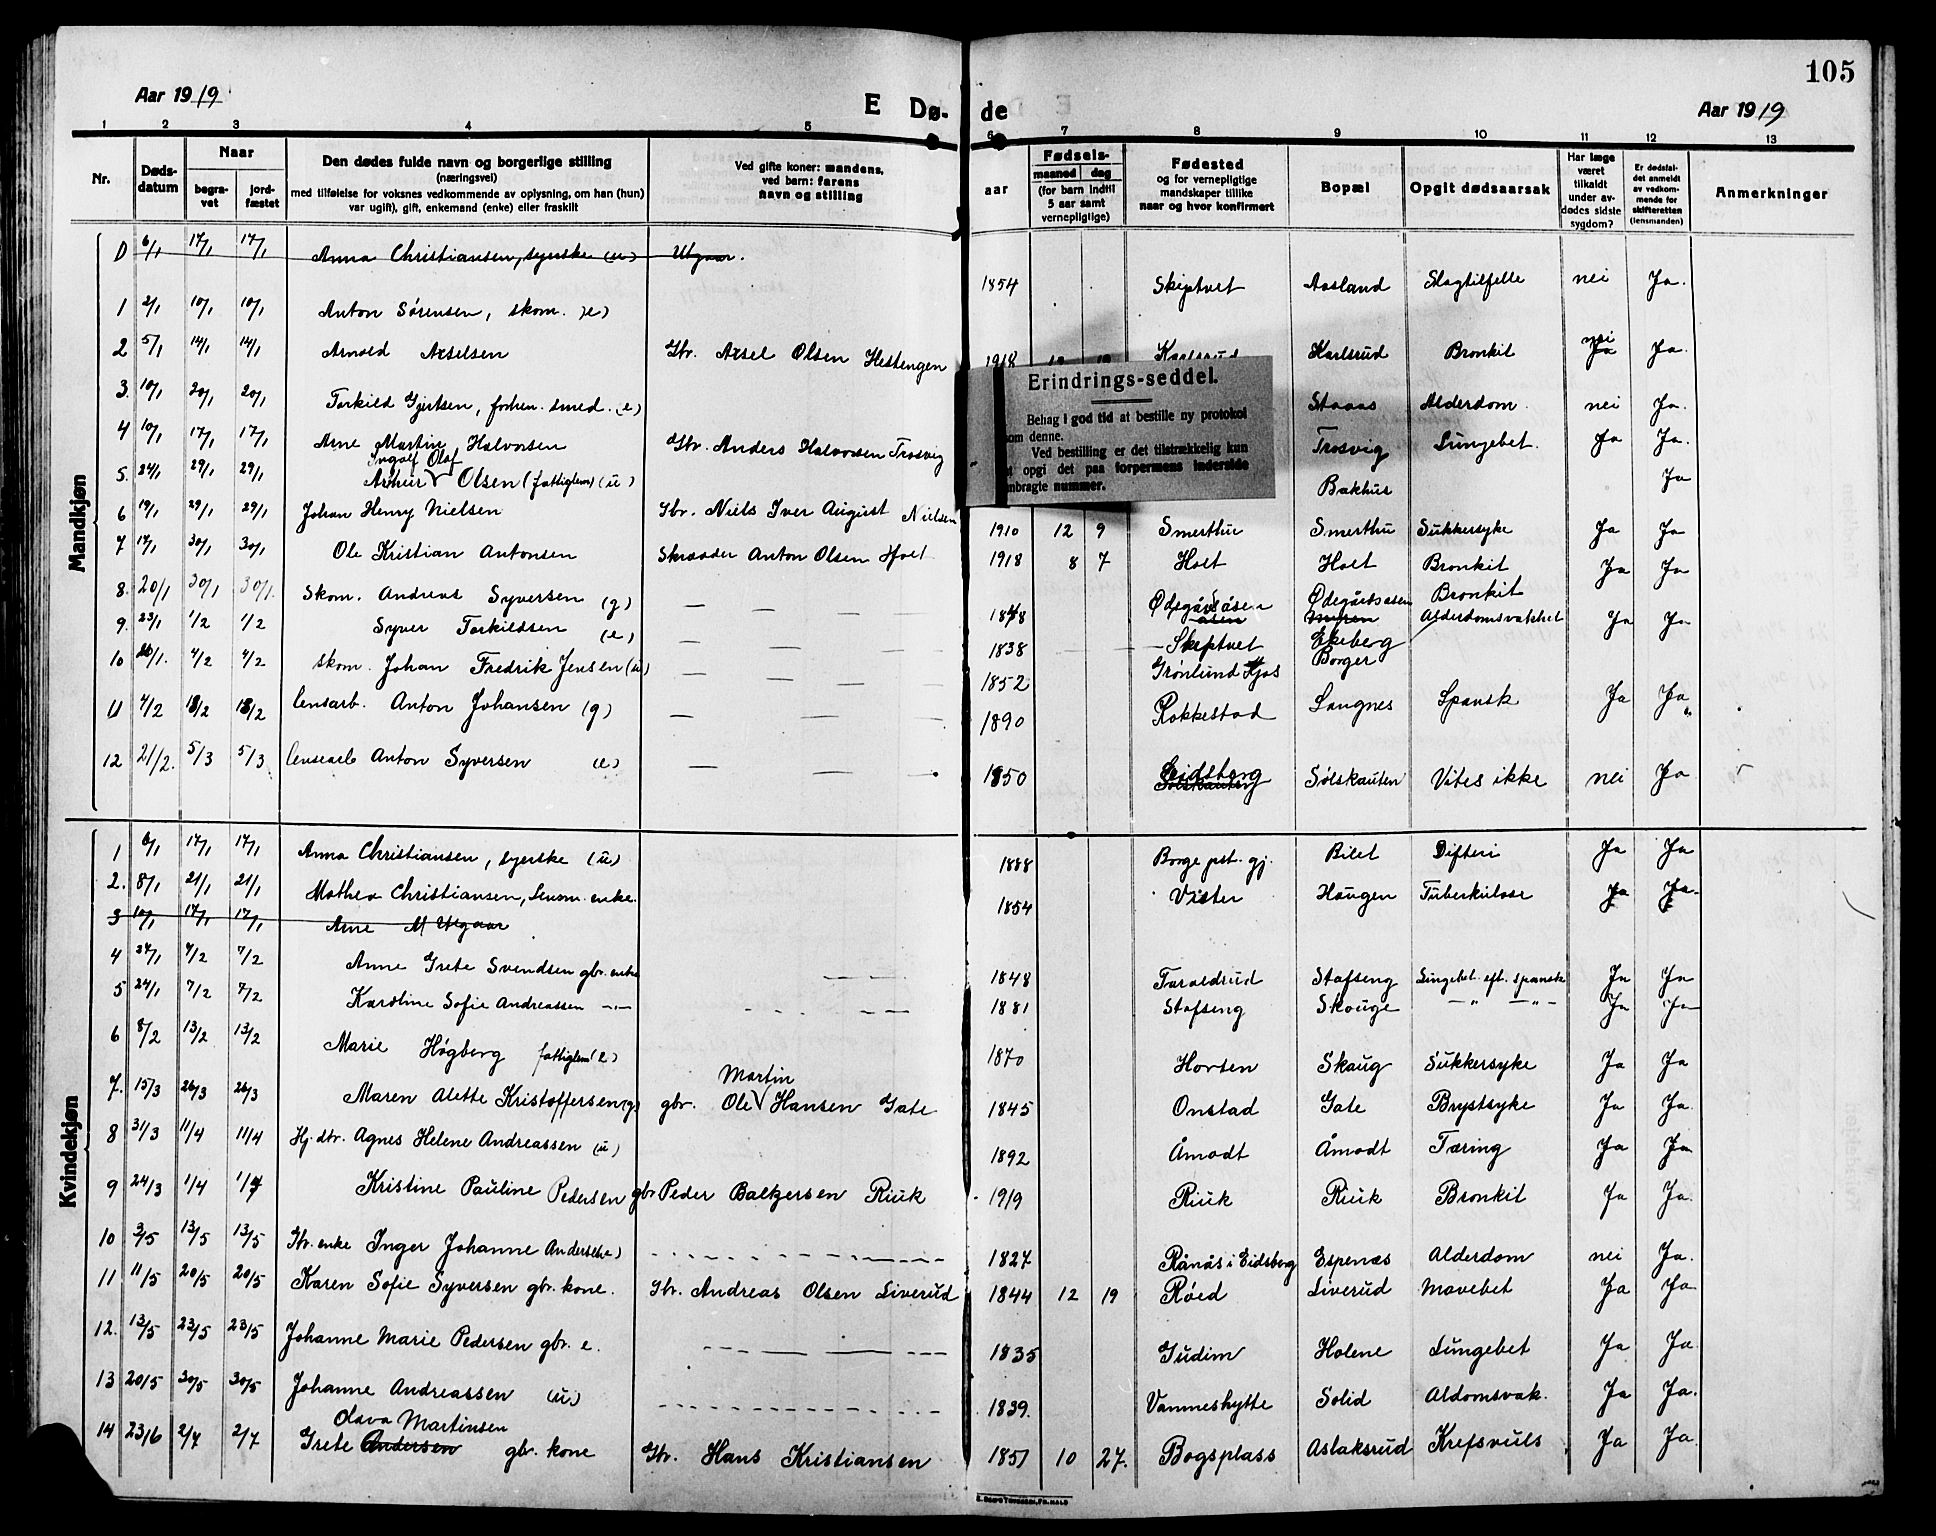 105
Aar 1919
E Dø-
de
Aar 1919
1 2 3 4 5 6 7 8 9 10 11 12 13
Nr.
Døds-
datum
Naar
begra-
vet
jord-
fæstet
Den dødes fulde navn og borgerlige stilling
(næringsvei)
med tilføielse for voksnes vedkommende av oplysning, om han (hun)
var ugift), gift, enkemand (enke) eller fraskilt
Ved gifte koner: mandens,
ved barn: farens
navn og stilling
aar
Fødsels-
maaned dag
(for barn indtil
5 aar samt
vernepligtige)
Fødested
og for vernepligtige
mandskaper tillike
naar og hvor konfirmert
Bopæl
Opgit dødsaarsak
Har læge
været
tilkaldt
under av-
dødes sidste
sygdom?
Er dødsfal-
det anmeldt
av vedkom-
mende for
skifteretten
(lensmanden)
Anmerkninger
Mandkjøn
0 6/1 17/1 17/1 Anna Christiansen, syerske (u) Utgaar.
1 2/1 10/1 10/1 Anton Sørensen, skom. (e) 1854 Skiptvet Aasland Slagtilfelle nei Ja.
2 5/1 14/1 14/1 Arnold Axelsen Gbr. Axel Olsen Hestengen 1918 Karlsrud Karlsrud Bronkit nei Ja Ja.
3. 10/1 20/1 20/1 Torkild Gjertsen, smed. (e) Alderdom. nei Ja.
4 10/1 17/1 17/1 Arne Martin Halvorsen Gbr. Anders Halvorsen Trosvig Trosvig Lungebet. Ja Ja.
Ingolf Olaf
5. 24/1 29/1 29/1 Arthur Olsen (fattiglem) (u) Bakhus Ja
Erindrings-seddel.
Behag i god tid at bestille ny protokol
om denne.
Ved bestilling er det tilstrækkelig kun
opgi det paa forpermens inderside
mbragte nummer.
6 19/1 29/1 29/1 Johan Henry Nielsen Gbr. Niels Iver August Nielsen 1910 12 9 Smerthu Smerthu Sukkersyke Ja Ja
7 17/1 30/1 30/1 Ole Kristian Antonsen Skrædder Anton Olsen Holt 1918 8 7 Holt Holt Bronkit Ja Ja
8. 20/1 30/1 30/1. Skom. Andreas Syversen (g) — — — 1848 Ødegårdsåsen Ødegårdsåsen Bronkit
9. 23/1 1/2 1/2 Syver Torkildsen (e) — — — 1838 Skiptvet Ekeberg Alderdomsvakhet Ja Ja
10 26/1. 4/2 4/2 skom. Johan Fredrik Jensen (u) — — — 1852 Grønlund Borger
11 4/2 18/2 18/2 Anton Johansen (g) — — — 1890 Rokkestad Langnes Spansk Ja Ja
12 21/2. 5/3 5/3 Anton Syversen (e) — — — 1850 Eidsberg Sølskauten Vites ikke nei Ja
Kvindekjøn
1 6/1 17/1 17/1 Anna Christiansen, syerske (u) 1888 Borge pst. gj. Bilet Difteri Ja Ja
2. 8/1 21/1 21/1 Mathea Christiansen, enke. 1854 Vister Haugen Tuberkulose Ja Ja.
3 10/1 17/1 17/1 Arne M Utgaar
4 27/1 7/2 7/2 Anne Grete Svendsen gbr. enke — — — 1848 Taraldrud Stafseng Lungebet. eft. spanske Ja Ja
5 24/1 7/2 7/2 Karoline Sofie Andreassen —"— 1881 Stafseng Skouge —"— —"— Ja Ja
6 8/2 13/2 13/2 Marie Høgberg fattiglem (e) 1870 Horten Skaug Sukkersyke Ja Ja
Martin
7. 15/3 26/3 26/3 Maren Alette Kristoffersen (g) gbr. Ole Hansen Gate 1845 Onstad Gate Brystsyke Ja Ja.
8 31/3 11/4 11/4 Hj. dtr. Agnes Helene Andreassen (u) 1892 Åmodt Åmodt Tæring Ja Ja
9 24/3 1/4 1/4 Kristine Pauline Pedersen gbr Peder Baltzersen Riuk 1919 Riuk Riuk Bronkit Ja Ja.
10 3/5 13/5 13/5 Gbr. enke Inger Johanne Andersen — — — 1827 Rånås i Eidsberg Espenæs Alderdom nei Ja.
11 11/5 20/5 20/5 Karen Sofie Syversen gbr. kone. Gbr. Andreas Olsen Liverud 1844 12 19 Røed Liverud Mavebet Ja Ja
12. 13/5 23/5 23/5 Johanne Marie Pedersen gbr. e. — — — 1835 Gudim Holene Lungebet Ja Ja.
13 20/5 30/5 30/5 Johanne Andreassen (u) — — — 1839. Vammeshytte Solid Aldomsvak. Ja Ja.
Olava Martinsen
14 23/6 2/7 2/7 Grete Andersen gbr. kone Gbr. Hans Kristiansen 1851 10 27. Bogsplass Aslaksrud Kræfsvuls Ja Ja.